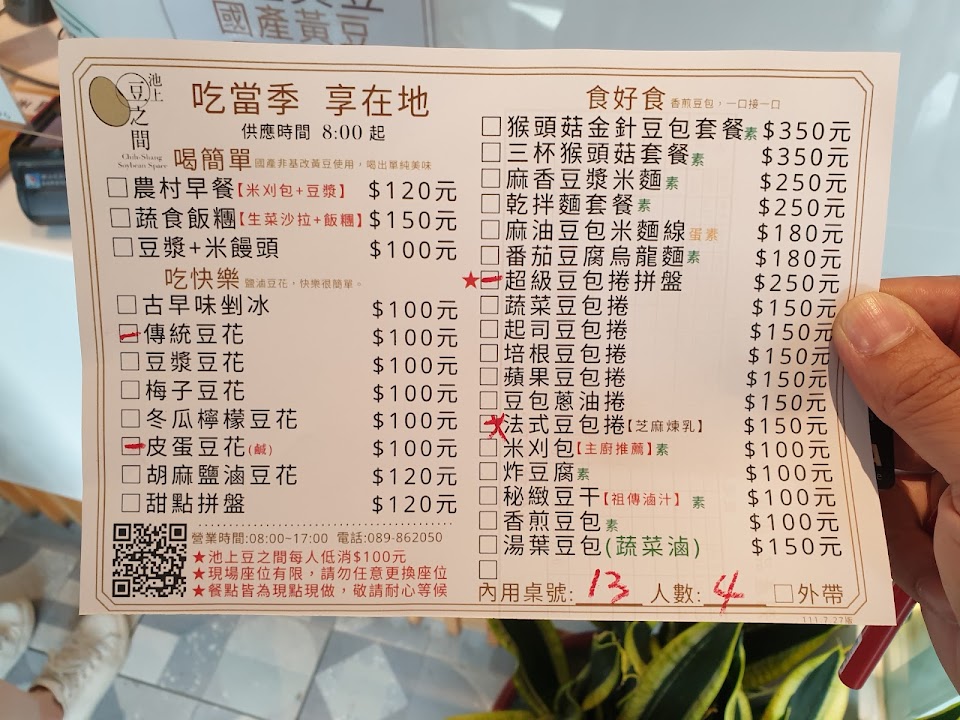 國產黃豆
池上
豆之間
Chih-Shang
Soybean Space
吃當季 享在地
供應時間 8:00 起
喝簡單 國產非基改黃豆使用，喝出單純美味
□農村早餐【米刈包+豆漿】 $120元
□蔬食飯糰【生菜沙拉+飯糰】 $150元
□豆漿+米饅頭 $100元
吃快樂 鹽滷豆花，快樂很簡單。
□古早味剉冰 $100元
□傳統豆花 $100元
□豆漿豆花 $100元
□梅子豆花 $100元
□冬瓜檸檬豆花 $100元
□皮蛋豆花(鹹) $100元
□胡麻鹽滷豆花 $120元
□甜點拼盤 $120元
營業時間:08:00~17:00 電話:089-862050
★池上豆之間每人低消$100元
★現場座位有限，請勿任意更換座位
★餐點皆為現點現做，敬請耐心等候
食好食 香煎豆包，一口接一口
□猴頭菇金針豆包套餐素 $350元
□三杯猴頭菇套餐素 $350元
□麻香豆漿米麵素 $250元
□乾拌麵套餐素 $250元
□麻油豆包米麵線蛋素 $180元
□番茄豆腐烏龍麵素 $180元
★□超級豆包捲拼盤 $250元
□蔬菜豆包捲 $150元
□起司豆包捲 $150元
□培根豆包捲 $150元
□蘋果豆包捲 $150元
□豆包蔥油捲 $150元
□法式豆包捲【芝麻煉乳】 $150元
□米刈包【主廚推薦】素 $100元
□炸豆腐素 $100元
□秘緻豆干【祖傳滷汁】素 $100元
□香煎豆包素 $100元
□湯葉豆包(蔬菜滷) $150元
□
內用桌號: 13 人數: 4 □外帶
111.7.27版